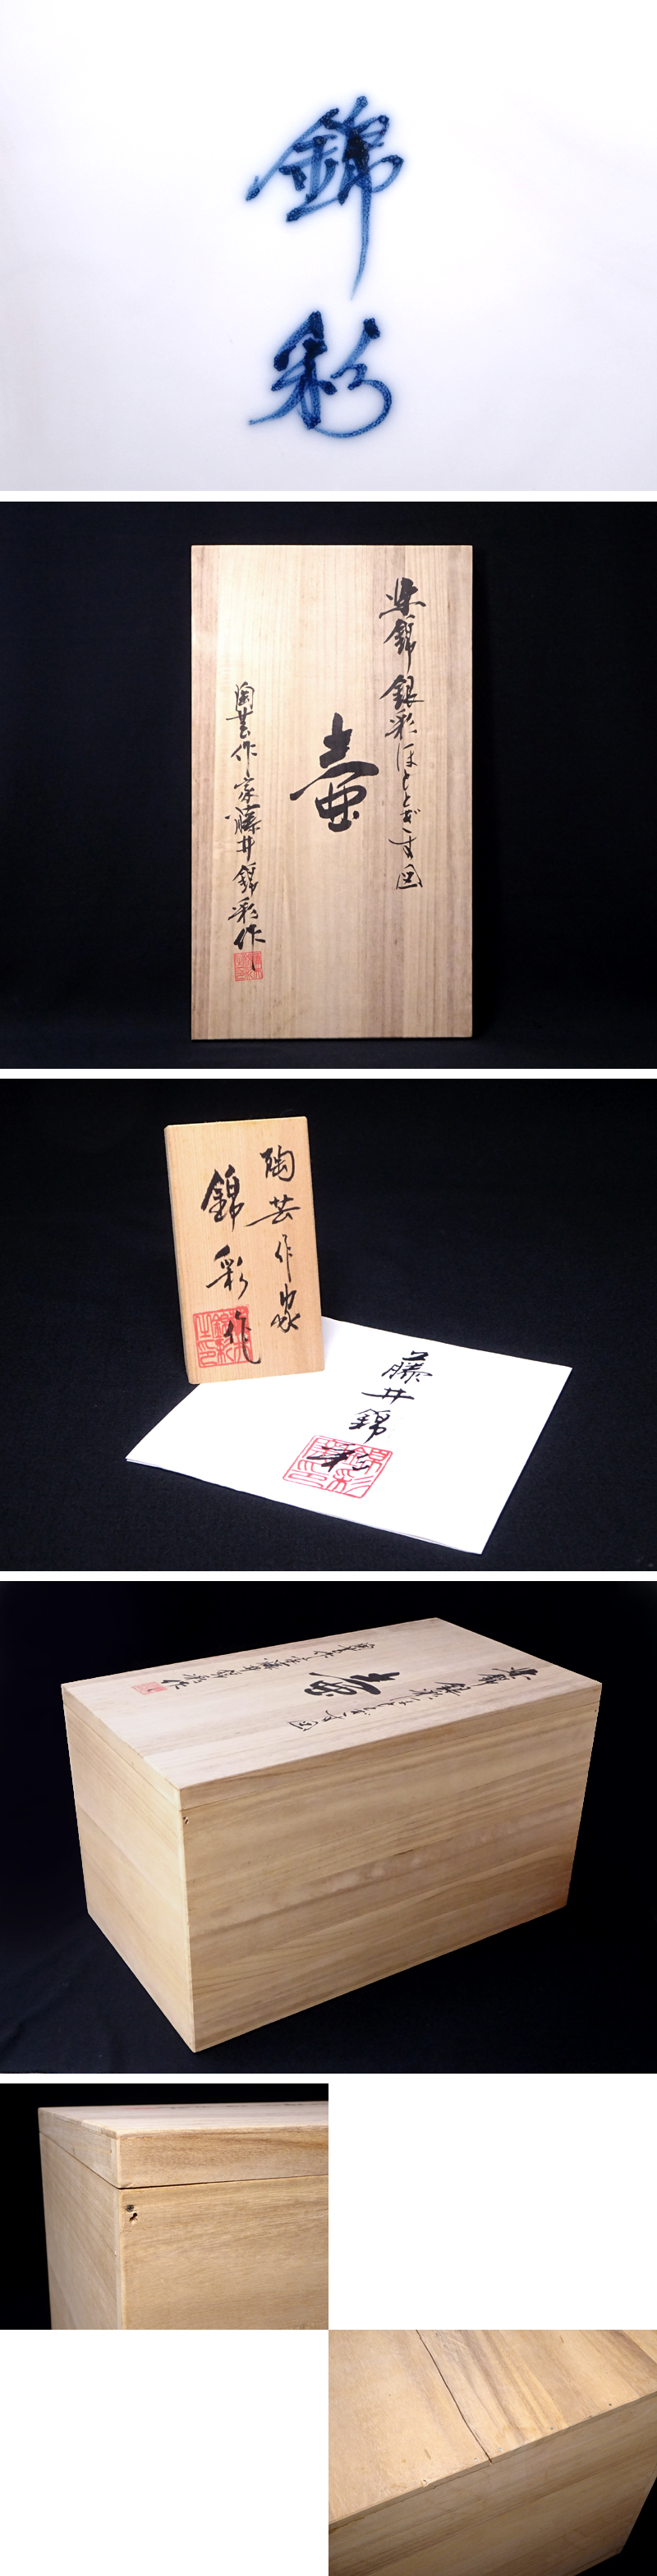 錦彩
染錦銀彩ほととぎす図
壷
陶芸作家藤井錦彩作
陶芸作家
錦彩作
藤井錦彩